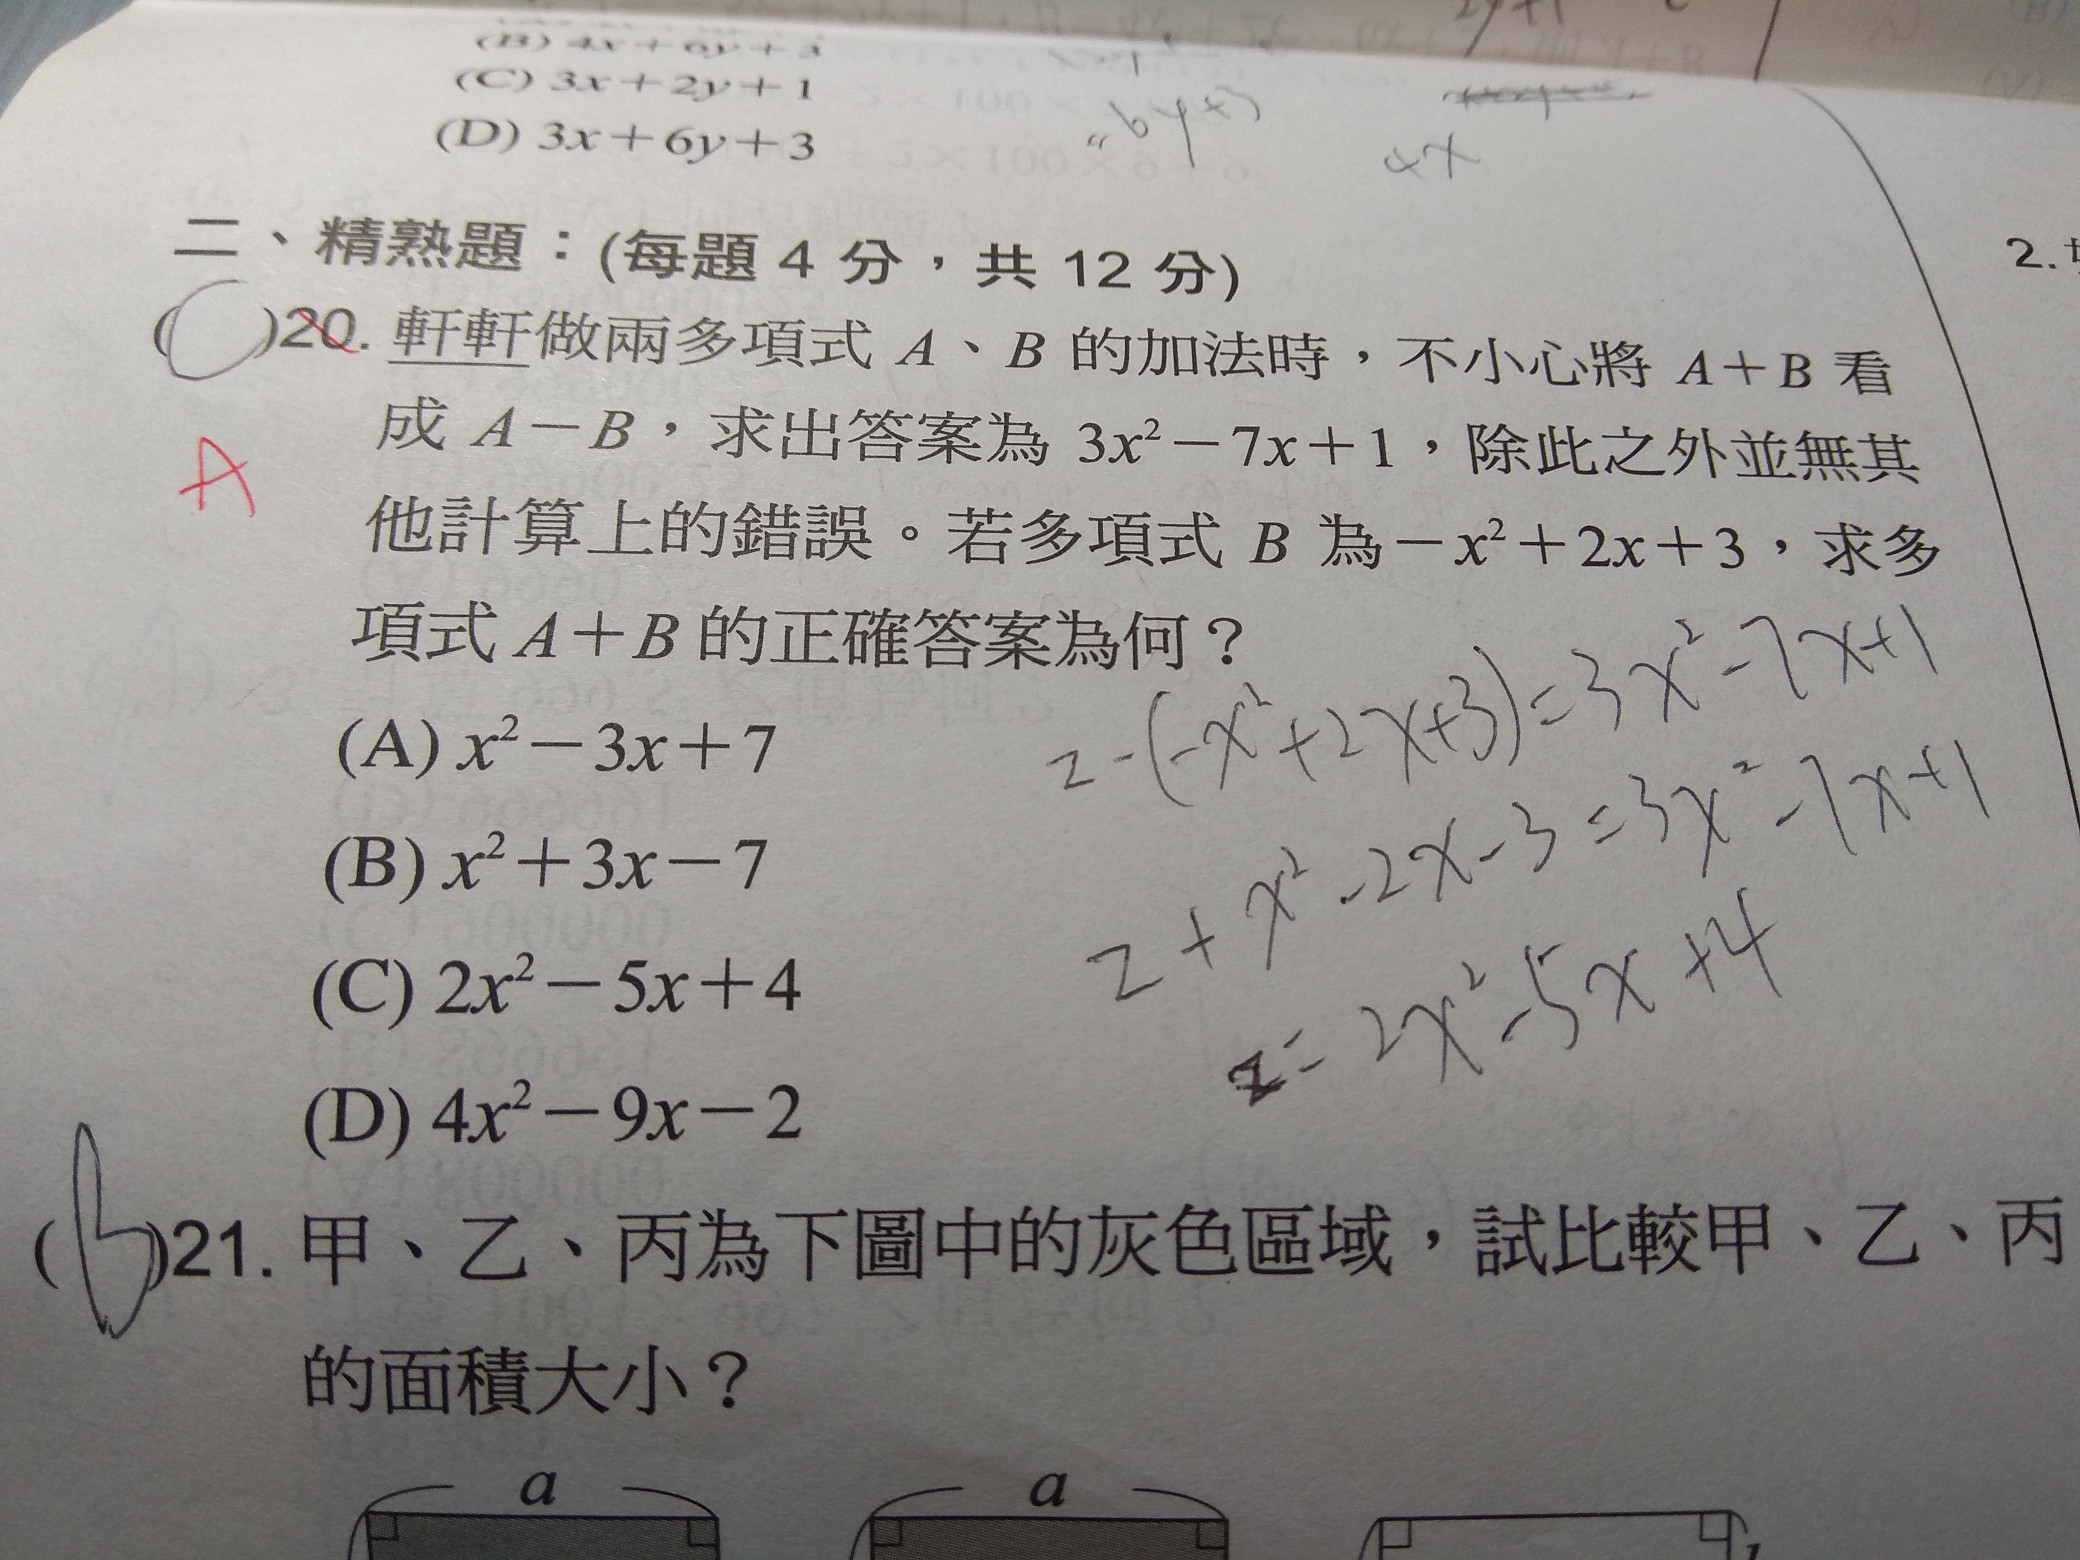 (B) 4x+6y+3
(C) 3x+2y+1
(D) 3x+6y+3
4x
二、精熟題：(每題 4 分，共 12 分)
(C)20. 軒軒做兩多項式 A、B 的加法時，不小心將 A＋B 看
成 A－B，求出答案為 3x²－7x＋1，除此之外並無其
A
他計算上的錯誤。若多項式 B 為－x²＋2x＋3，求多
項式 A＋B 的正確答案為何？
(A) x²－3x＋7
(B) x²＋3x－7
(C) 2x²－5x＋4
(D) 4x²－9x－2
z-(-x²+2x+3)=3x²-7x+1
z+x²-2x-3=3x²-7x+1
z=2x²-5x+4
(b)21. 甲、乙、丙為下圖中的灰色區域，試比較甲、乙、丙
的面積大小？
a a
2.